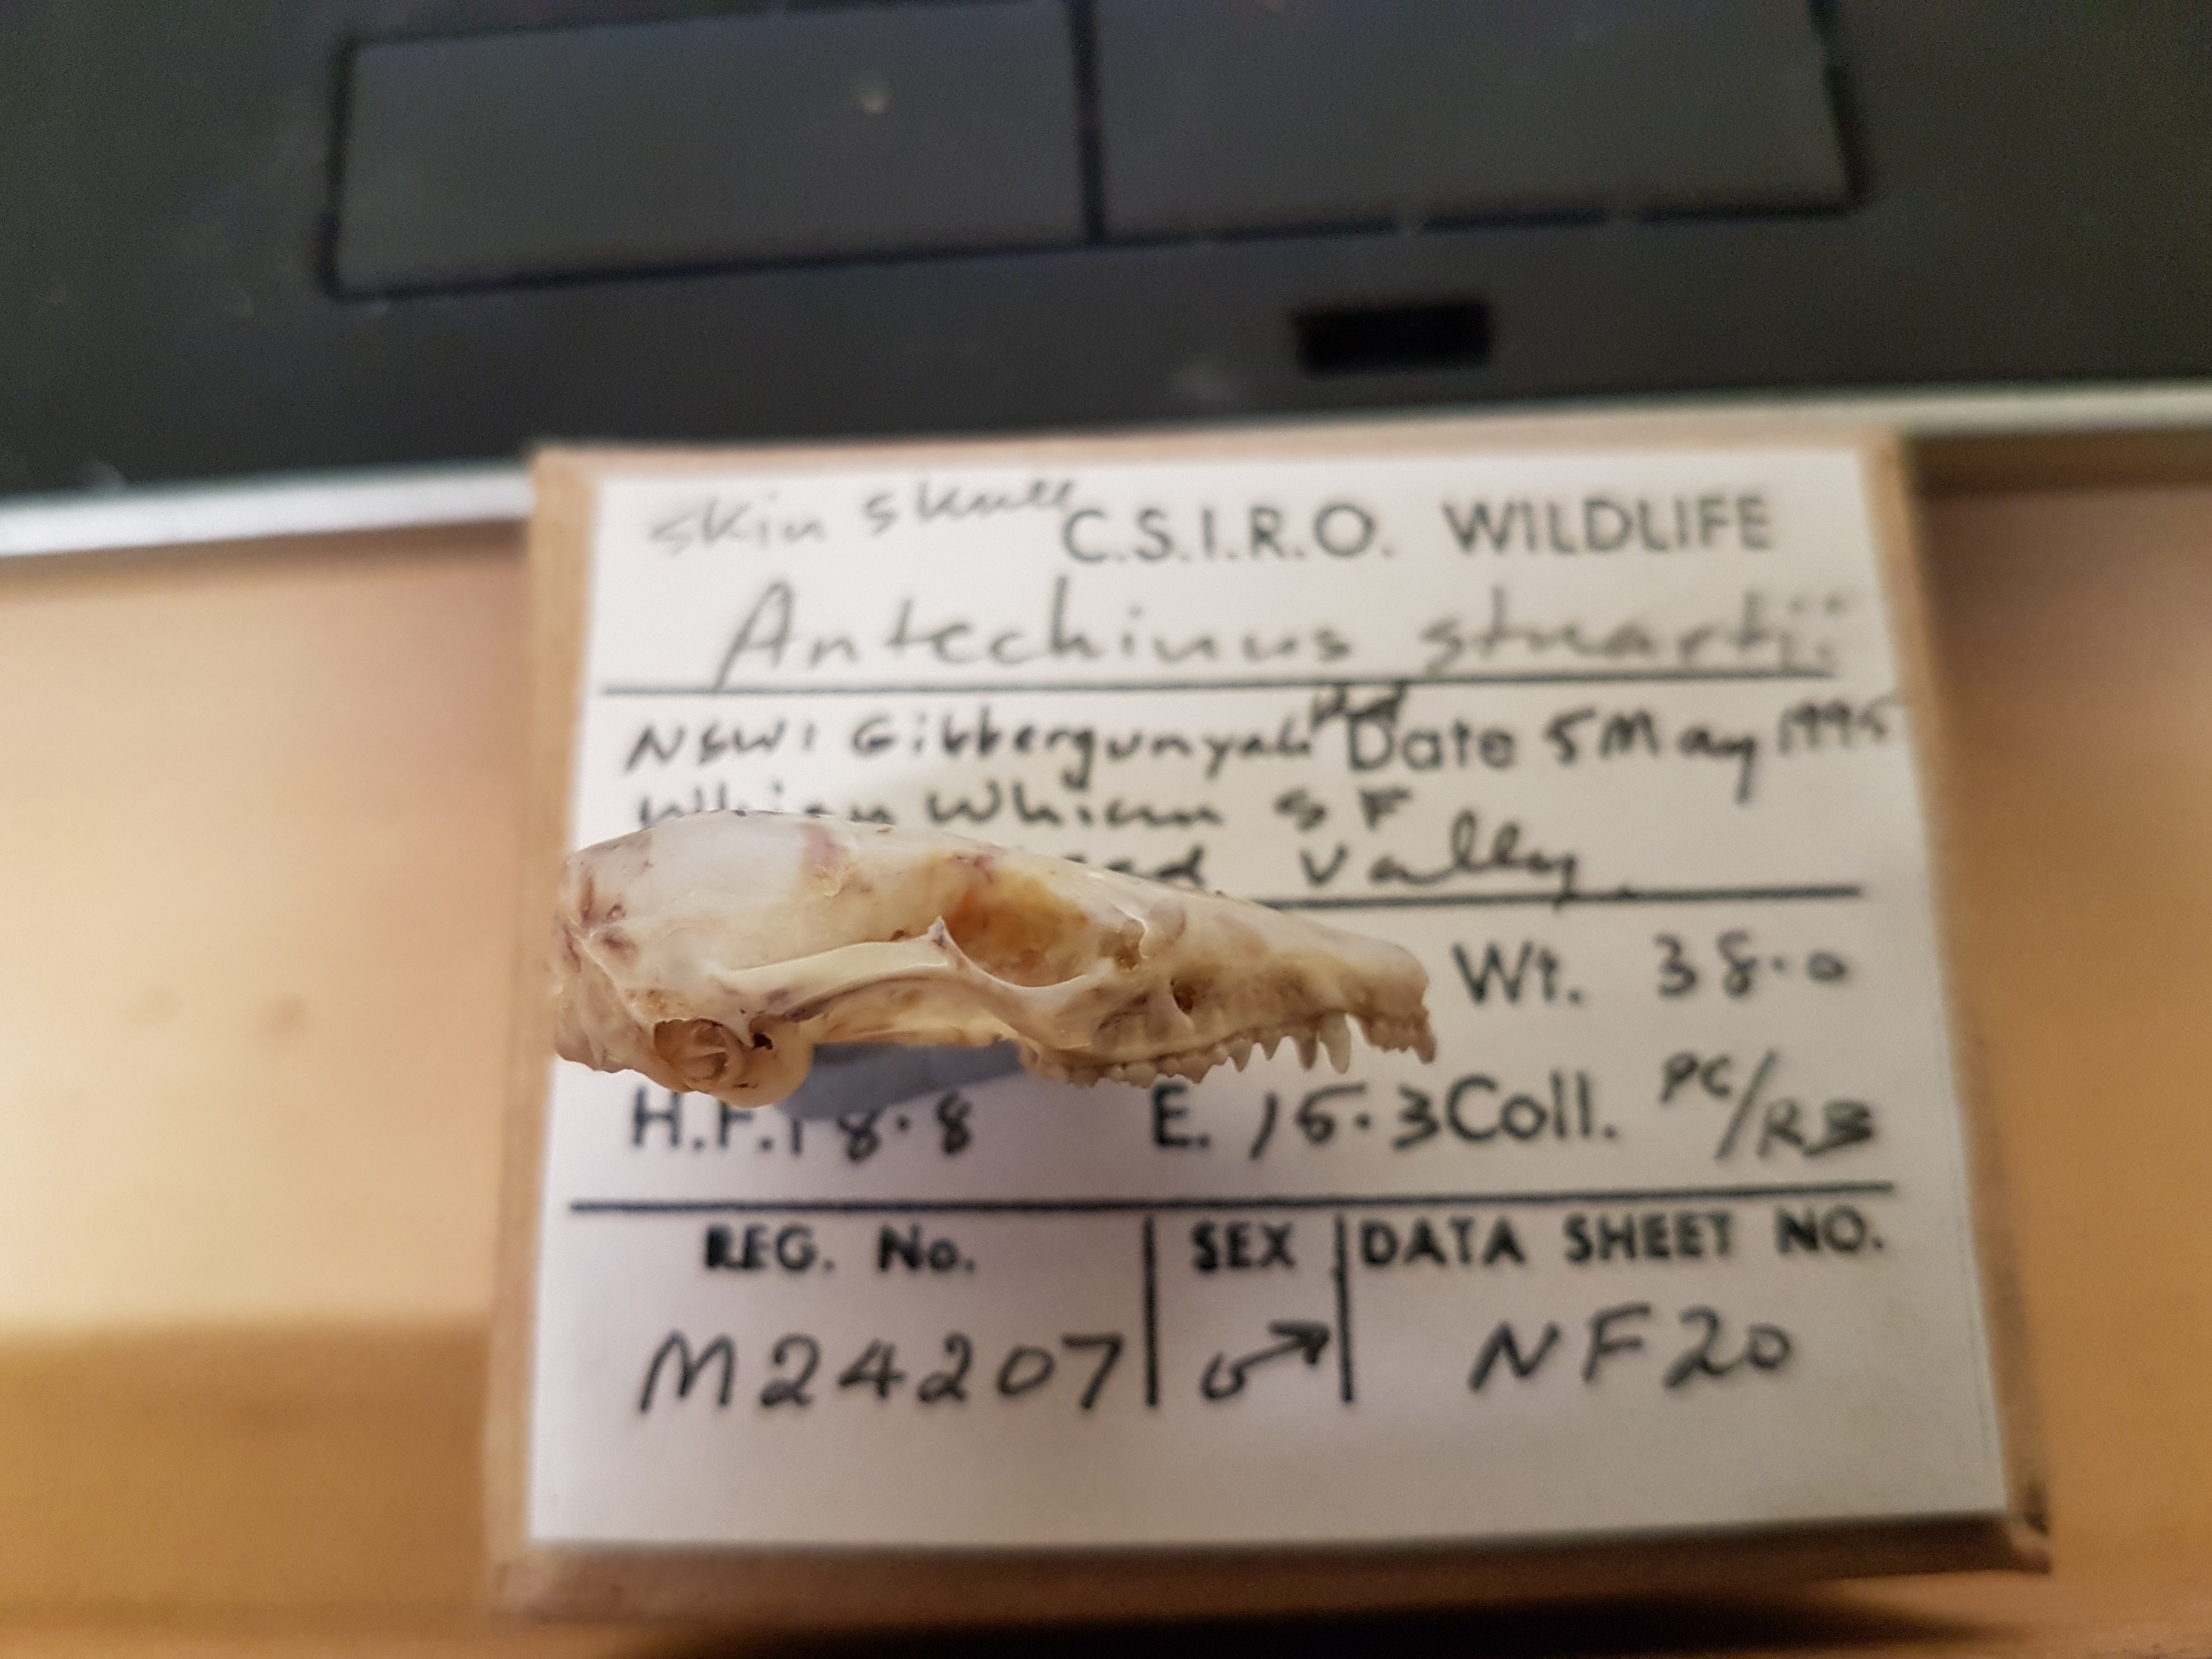 skin skull
C.S.I.R.O. WILDLIFE
Antechinus stuartii
NSW: Gibbergunyah Date 5 May 1995
Whian SF
Valley
Wt. 38.0
H.F. 18.8 E. 16.3 Coll. PC/RB
REG. No. SEX DATA SHEET NO.
M24207 ♂ NF20